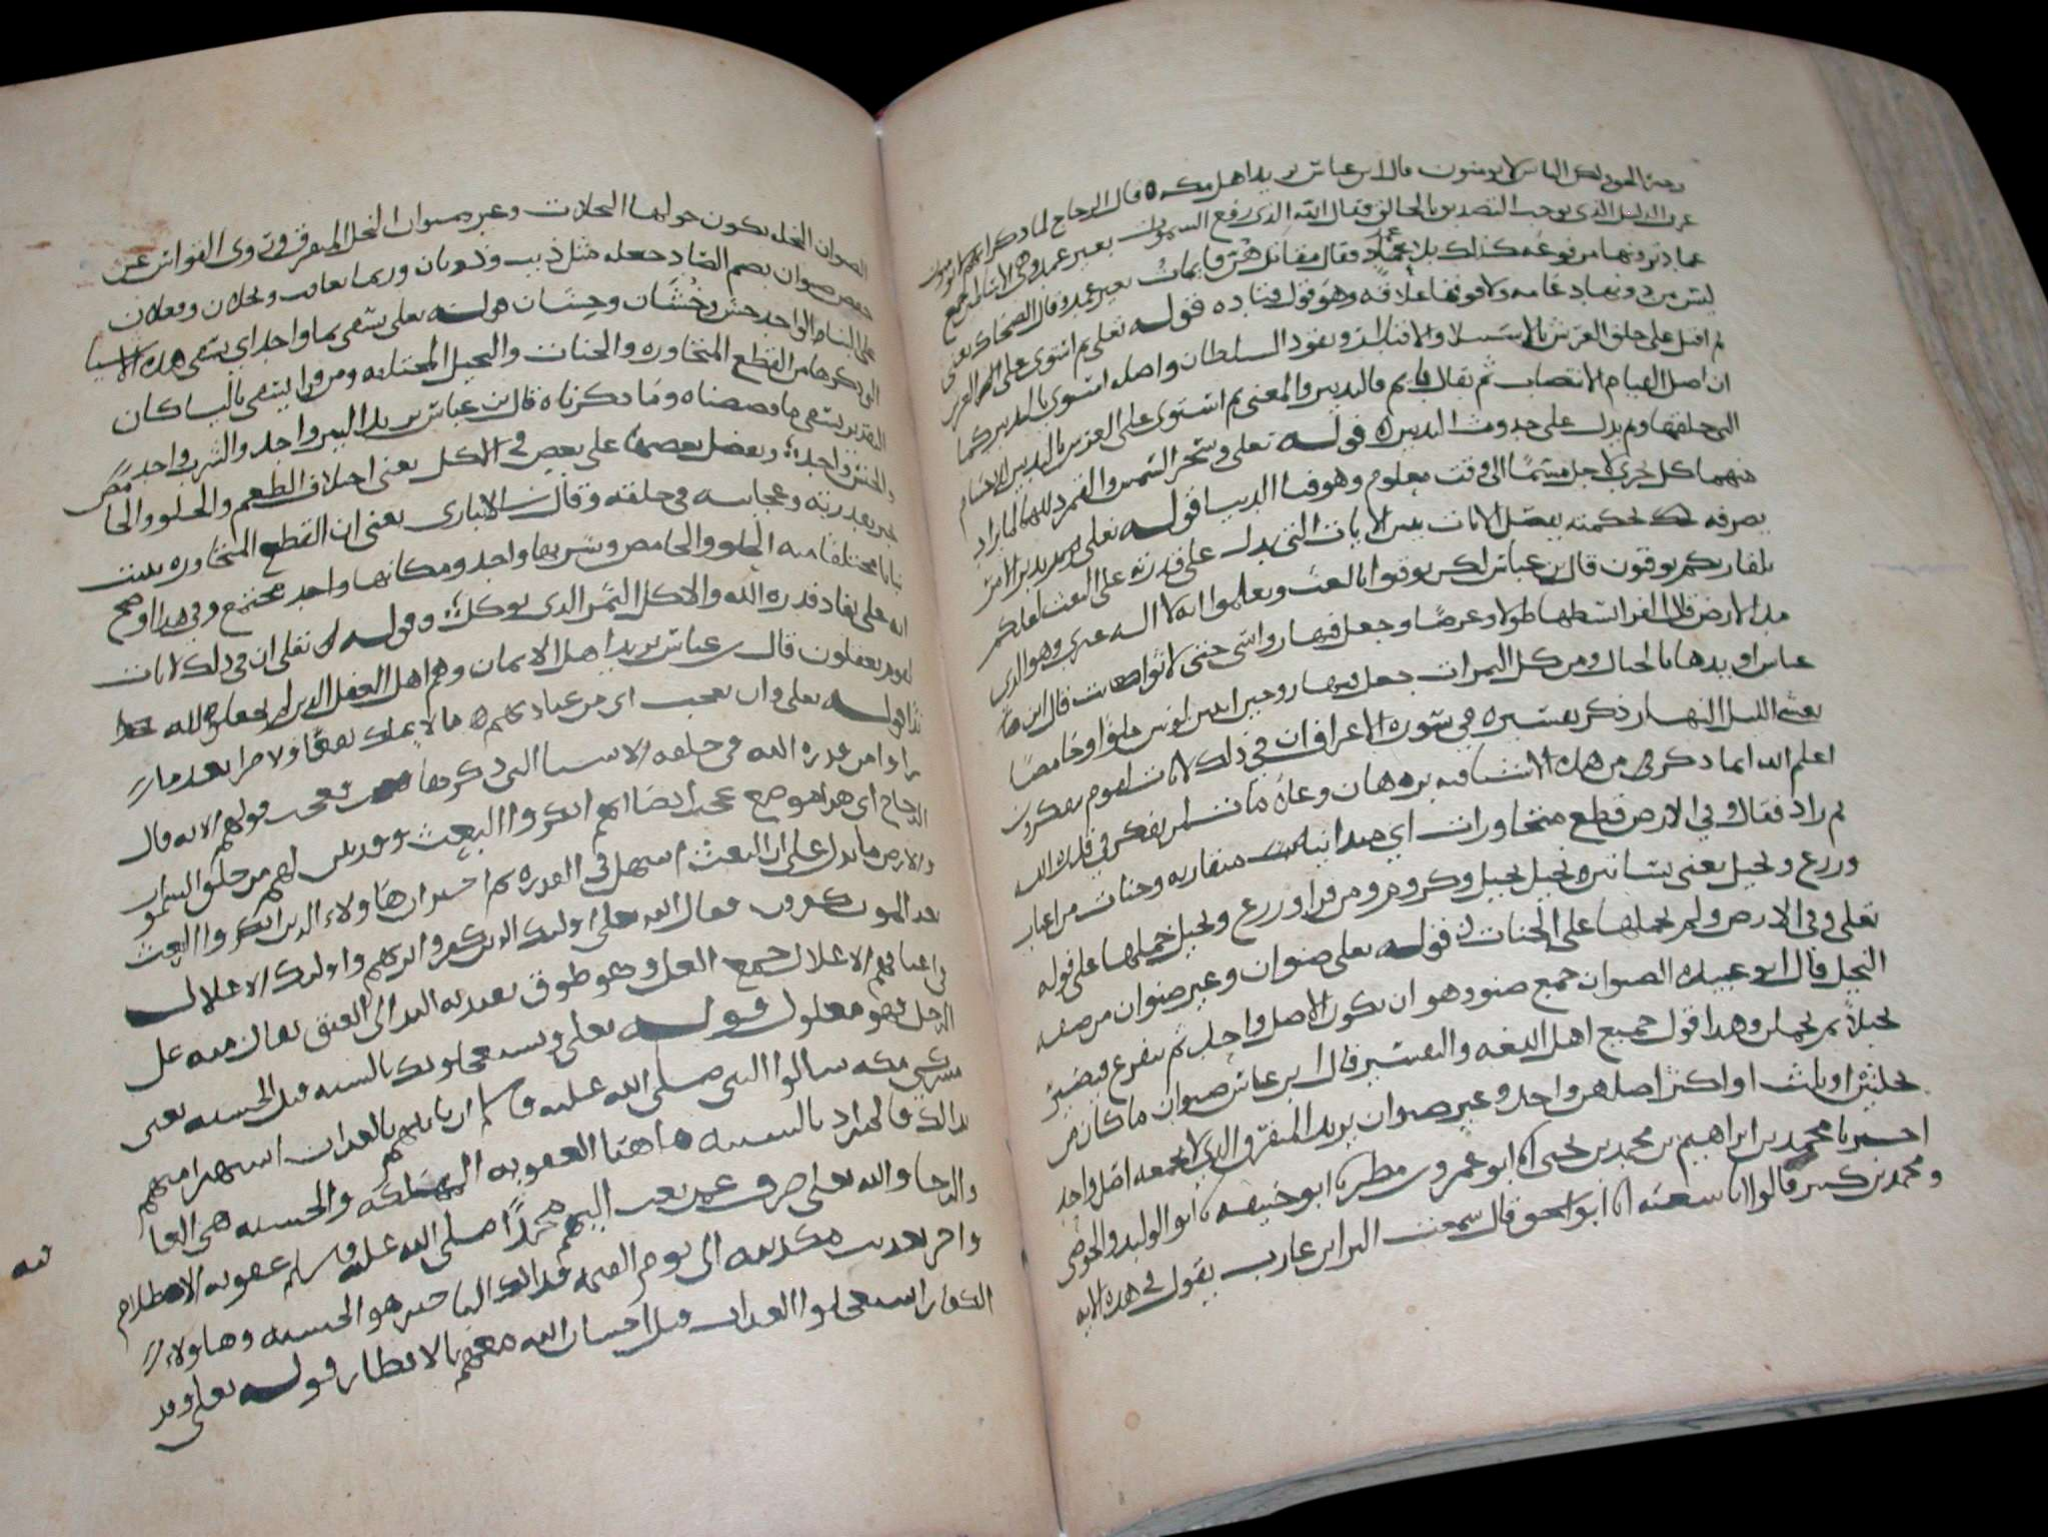 الحق ولكن اكثر الناس لا يومنون قال ابن عباس يريد اهل مكه قال الزجاج لما ذكر انهم لا يومنون
عرف الدليل الذي يوجب التصديق بالخالق فقال الله الذي رفع السموات بغير عمد وهي الاساطين جمع
عماد ترونها مرفوعه كذلك بلا عماد فقال مقاتل هن قايمات بغير عمد وقال الضحاك يعني
ليس من دونها دعامه ولا فوقها علاقه وهو قول قتاده قوله تعلى ثم استوى على العرش
ثم اقبل على خلق العرش بالاستيلا والاقتدار ونفوذ السلطان واصله استوى بالتدبير كما
ان اصل القيام الانتصاب ثم يقال قايم بالتدبير والمعنى ثم استوى على العرش بالتدبير للاجسام
التي خلقها وثم يدل على حدوث التدبير قوله تعلى وسخر الشمس والقمر ذللهما لما يراد
منهما كل يجري لاجل مسمى الى وقت معلوم وهو فنا الدنيا قوله تعلى يدبر الامر
يصرفه بحكمته يفصل الايات يبين الايات التي تدل على قدرته على البعث لعلكم
بلقا ربكم توقنون قال ابن عباس لكي توقنوا بالبعث وتعلموا انه لا اله غيري وهو الذي
مد الارض قال الفرا بسطها طولا وعرضا وجعل فيها رواسي جبالا ثوابت قال ابن
عباس اوتدها بالجبال ومن كل الثمرات جعل فيها زوجين اثنين لونين حلوا وحامضا
يغشي الليل النهار ذكر تفسيره في سوره الاعراف ان في ذلك لايات لقوم يتفكرون
اعلم الله انما ذكر من هذه الاشيا فيه برهان وعلامات لمن تفكر في قدره الله
ثم زاد فقال وفي الارض قطع متجاورات اي متدانيات متقاربه وجنات من اعناب
وزرع ونخيل يعني بساتين نخيل وكروم ومن قرا وزرع ونخيل حملها على قوله
تعلى وفي الارض ولم يحملها على الجنات قوله تعلى صنوان وغير صنوان من صفه
النخيل قال ابو عبيده الصنوان جمع صنو وهو ان يكون الاصل واحد ثم يتفرع فيصير
نخيلا ثم يحملن وهذا قول جميع اهل اللغه والتفسير قال ابن عباس صنوان ما كان من
نخلتين او ثلث او اكثر اصلهن واحد وغير صنوان يريد المتفرق الذي لا يجمعه اصل واحد
اخبرنا محمد بن ابراهيم بن محمد بن يحيى انا ابو عمرو بن مطر نا ابو خليفه نا ابو الوليد والحوضي
ومحمد بن كثير قالوا انا شعبه انا ابو اسحق قال سمعت البرا بن عازب يقول في هذه الايه
الصنوان النخله يكون حولها النخلات وغير صنوان النخل المتفرق وروى القواس عن
حفص صنوان بضم الصاد جعله مثل ذيب وذوبان وربما تعاقب فعلان وفعلان
على البنا الواحد حش وحشان وحشان قوله تعلى يسقى بما واحد اي يسقى هذه الاشيا
التي ذكرها من القطع المتجاوره والجنات والنخيل المختلفه ومن قرا يسقى باليا كان
التقدير يسقى ما قصصناه وما ذكرناه قال ابن عباس يريد البير واحد والشرب واحد
والجنس واحد ونفضل بعضها على بعض في الاكل يعني اختلاف الطعم والحلو والحامض
يخبر بقدرته وعجايبه في خلقه وقال ابن الانباري يعني ان القطع المتجاوره ينبت
نباتا مختلفا منه الحلو والحامض وشربها واحد ومكانها واحد مجتمع وفي هذا اوضح
ايه على نفاذ قدره الله والاكل الثمر الذي يوكل وقوله تعلى ان في ذلك لايات
لقوم يعقلون قال ابن عباس يريد اهل الايمان وهم اهل العقل الذين لم يجعلوا لله
ندا قوله تعلى وان تعجب اي من عبادتهم ما لا يملك نفعا ولا ضرا بعد ما
راوا من قدره الله في خلقه الاشيا التي ذكرها فعجب قولهم الايه قال
الزجاج اي هذا موضع عجب ايضا انهم انكروا البعث وقد بين لهم من خلق السموات
والارض ما يدل على ان البعث اسهل في القدره ثم اخبر ان هاولاء الذين انكروا البعث
بعد الموت كفروا فقال الله تعلى اوليك الذين كفروا بربهم واوليك الاغلال
في اعناقهم الاغلال جمع الغل وهو طوق يقيد به اليد الى العنق يقال منه غل
الرجل فهو مغلول قوله تعلى ويستعجلونك بالسيئه قبل الحسنه يعني
مشركي مكه سالوا النبي صلى الله عليه وسلم ان ياتيهم بالعذاب استهزا منهم
بذلك فالمراد بالسيئه هاهنا العقوبه المهلكه والحسنه هي العا
فيه
والرخا والله تعلى صرف عمن بعث اليهم محمدا صلى الله عليه وسلم عقوبه الاصطلام
واخر تعذيب مكذبيه الى يوم القيمه فذلك التاخير هو الحسنه وهاولاء
الكفار استعجلوا العذاب قبل احسان الله معهم بالانظار قوله تعلى وقد